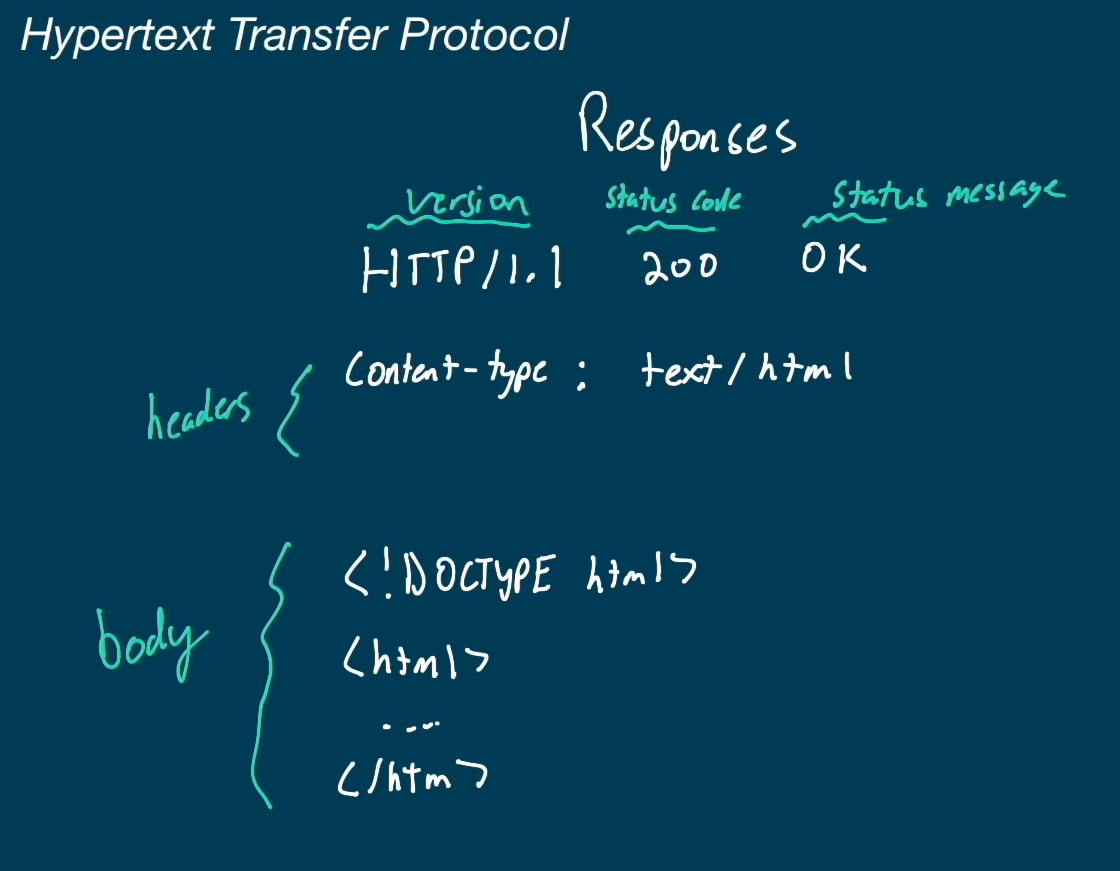 Hypertext Transfer Protocol
Responses
version status code status message
HTTP/1.1 200 OK
headers { Content-type : text/html
body { <!DOCTYPE html>
<html>
....
</htm>